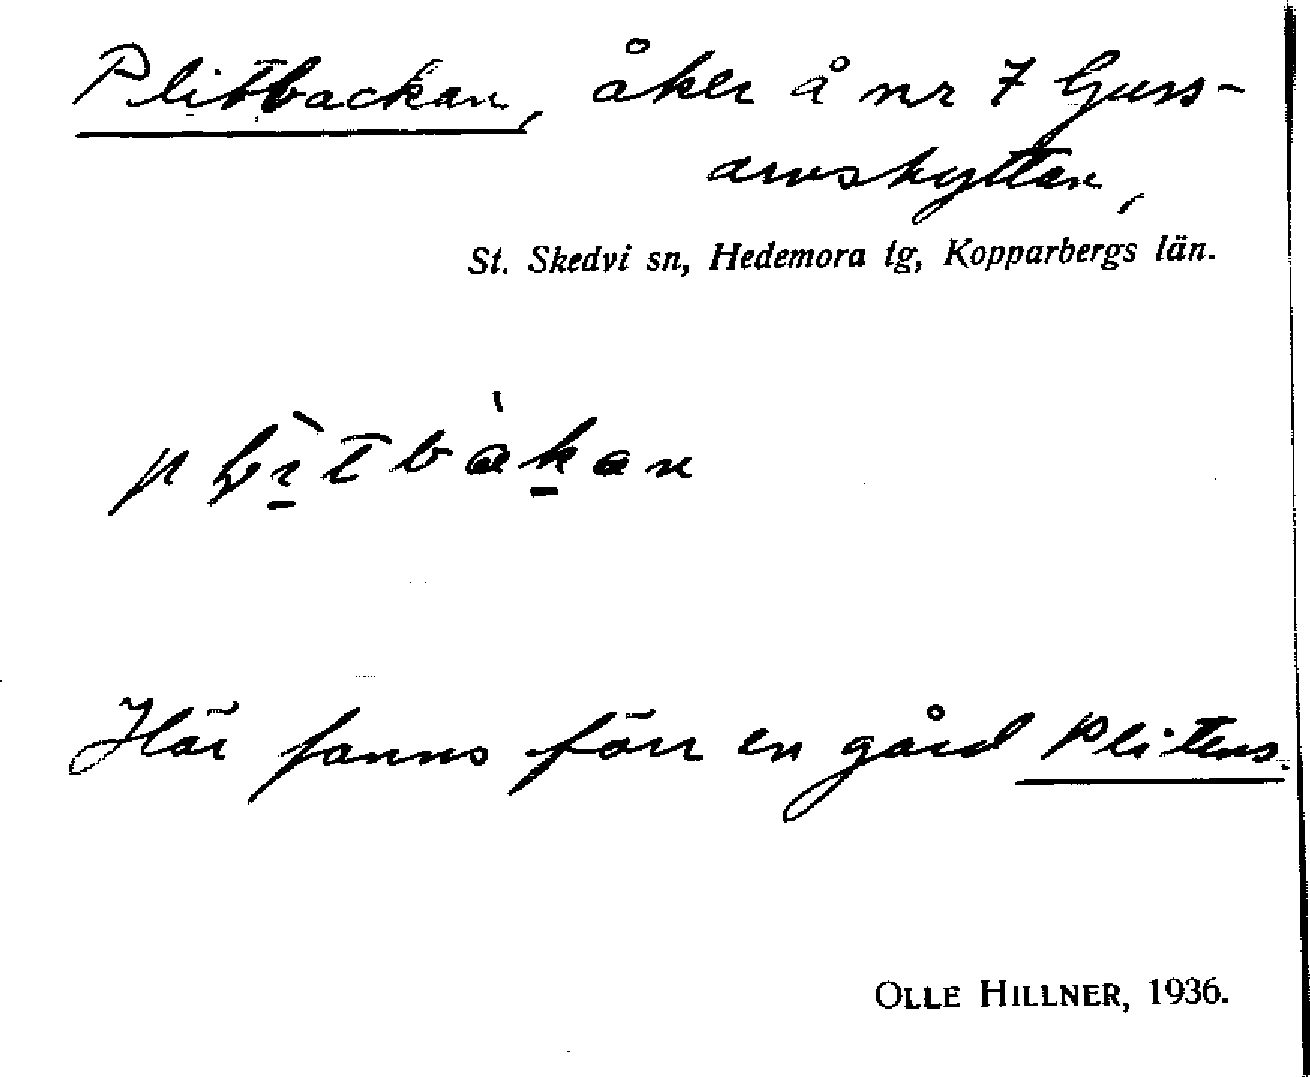 Plitbackan, åker å nr 7 Guss-
arvshyttan,
St. Skedvi sn, Hedemora tg, Kopparbergs län.
Här fanns förr en gård Plitens.
OLLE HILLNER, 1936.